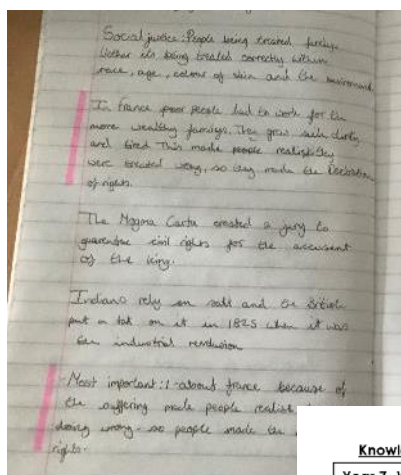 Social justice: People being treated fairly.
being treated correctly within
race, age, colour of skin and the
In france poor people had to work for the
more wealthy familys. They grew sick, dirty
and tired This made people realist they
were treated wrong, so they made the Declaration
of rights.
The Magna Carta created a jury to
guarantee civil rights for the
of the king.
Indians rely on salt and the British
put a tax on it in 1825 when it was
the industrial revolution
Most important: 1 - about france because of
the suffering made people realist
doing wrong. so people made the
rights.
Knowl
Year 7